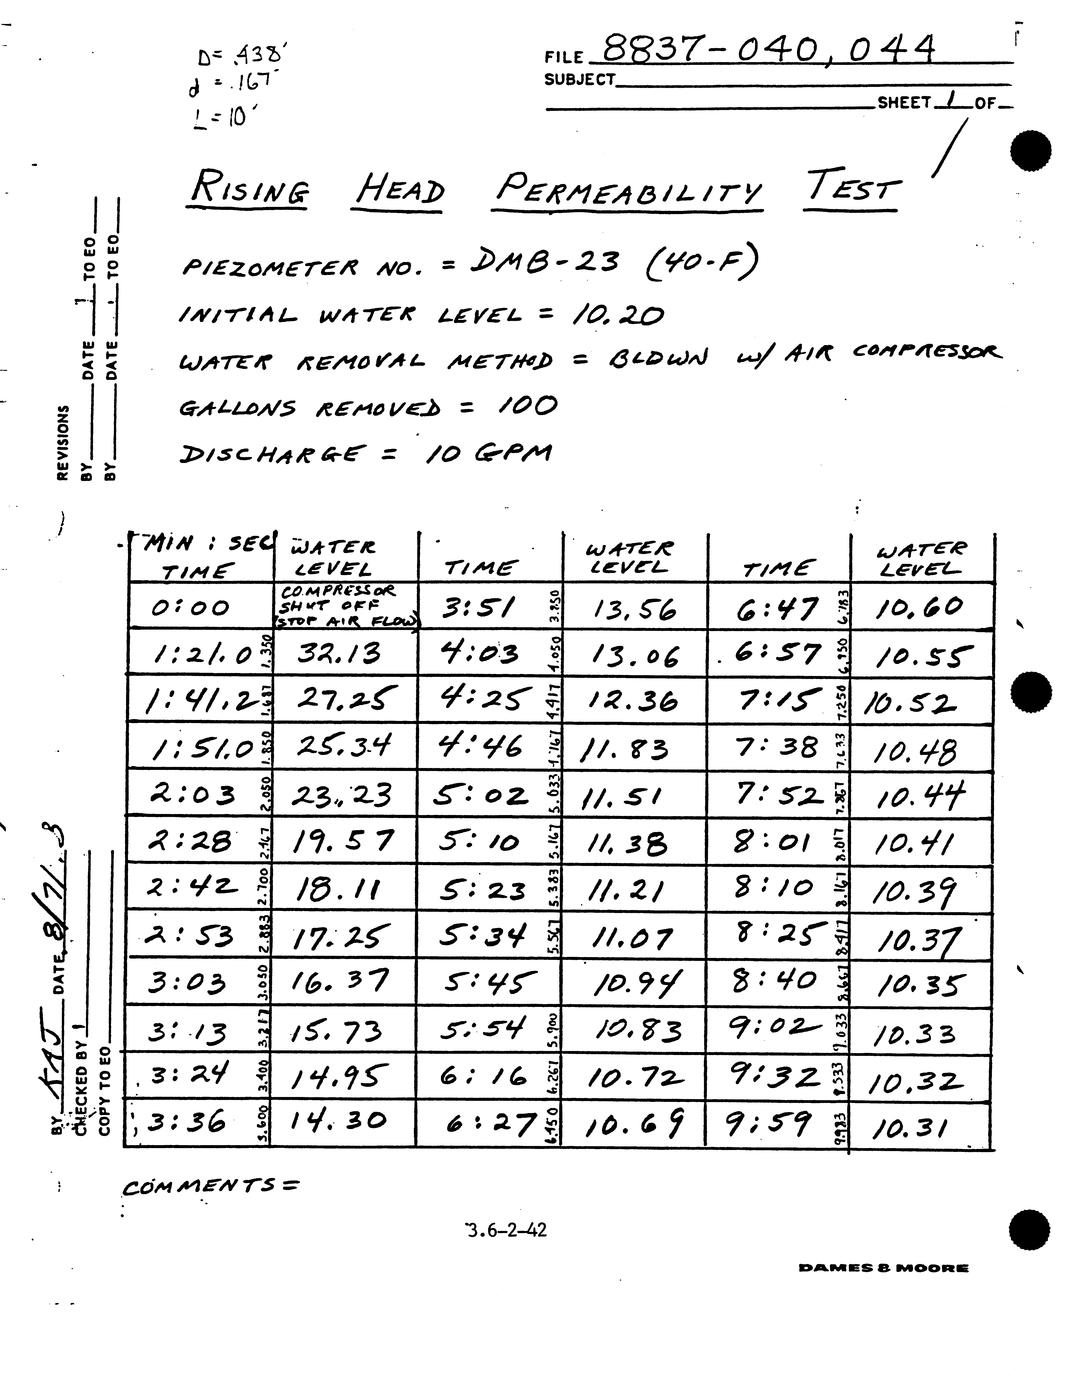 D= .438'
d = .167'
L = 10'
FILE 8837-040, 044
SUBJECT
SHEET 1 OF
RISING HEAD PERMEABILITY TEST
PIEZOMETER NO. = DMB-23 (40-F)
INITIAL WATER LEVEL = 10.20
WATER REMOVAL METHOD = BLOWN w/ AIR COMPRESSOR
GALLONS REMOVED = 100
DISCHARGE = 10 GPM
REVISIONS
BY DATE TO EO
BY DATE TO EO
MIN : SEC TIME WATER LEVEL TIME WATER LEVEL TIME WATER LEVEL
0:00 COMPRESSOR SHUT OFF (STOP AIR FLOW) 3:51 3.850 13.56 6:47 6.783 10.60
1:21.0 1.350 32.13 4:03 4.050 13.06 6:57 6.950 10.55
1:41.2 1.687 27.25 4:25 4.417 12.36 7:15 7.250 10.52
1:51.0 1.850 25.34 4:46 4.767 11.83 7:38 7.633 10.48
2:03 2.050 23.23 5:02 5.033 11.51 7:52 7.867 10.44
2:28 2.467 19.57 5:10 5.167 11.38 8:01 8.017 10.41
2:42 2.700 18.11 5:23 5.383 11.21 8:10 8.167 10.39
2:53 2.883 17.25 5:34 5.567 11.07 8:25 8.417 10.37
3:03 3.050 16.37 5:45 10.94 8:40 8.667 10.35
3:13 3.217 15.73 5:54 5.900 10.83 9:02 9.033 10.33
3:24 3.400 14.95 6:16 6.267 10.72 9:32 9.533 10.32
3:36 3.600 14.30 6:27 6.450 10.69 9:59 9.983 10.31
BY KAJ DATE
CHECKED BY
COPY TO EO
COMMENTS =
3.6-2-42
DAMES & MOORE